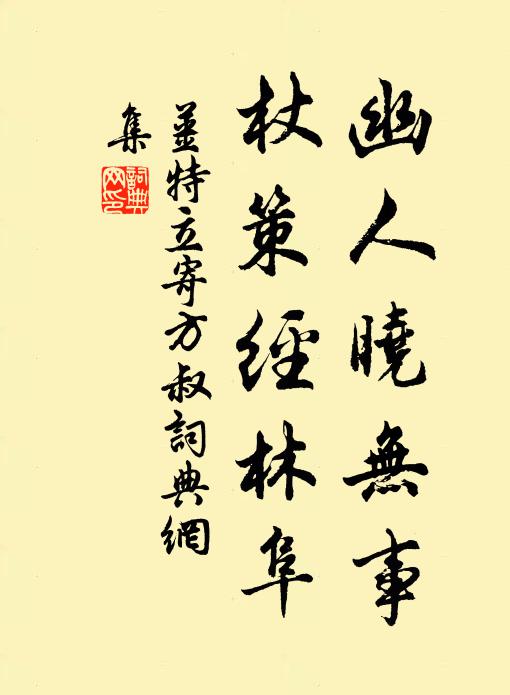 幽人曉無事
杖策經林阜
姜特立寄方叔詞典網
集
詞典
网印